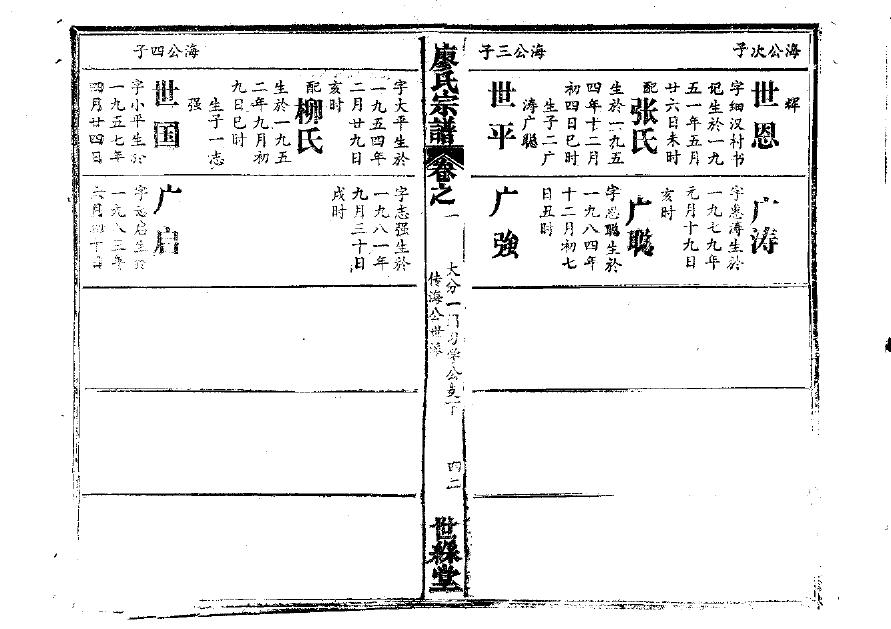 海公次子
海公三子
辉
世恩
字细汉村书
记生於一九
五一年五月
廿六日未时
配张氏
生於一九五
四年十二月
初四日巳时
生子二广
涛广聪
世平
广涛
字惠涛生於
一九七九年
元月十九日
亥时
广聪
字思聪生於
一九八四年
十二月初七
日丑时
广強
廖氏宗譜
卷之一
大分一门习学公支下
传海公世派
四二
世綵堂
海公四子
字大平生於
一九五四年
二月廿九日
亥时
配柳氏
生於一九五
二年九月初
九日巳时
生子一志
强
世国
字小平生於
一九五七年
四月廿四日
字志强生於
一九八一年
九月三十日
戌时
广启
字启生於
一九八三年
六月十日